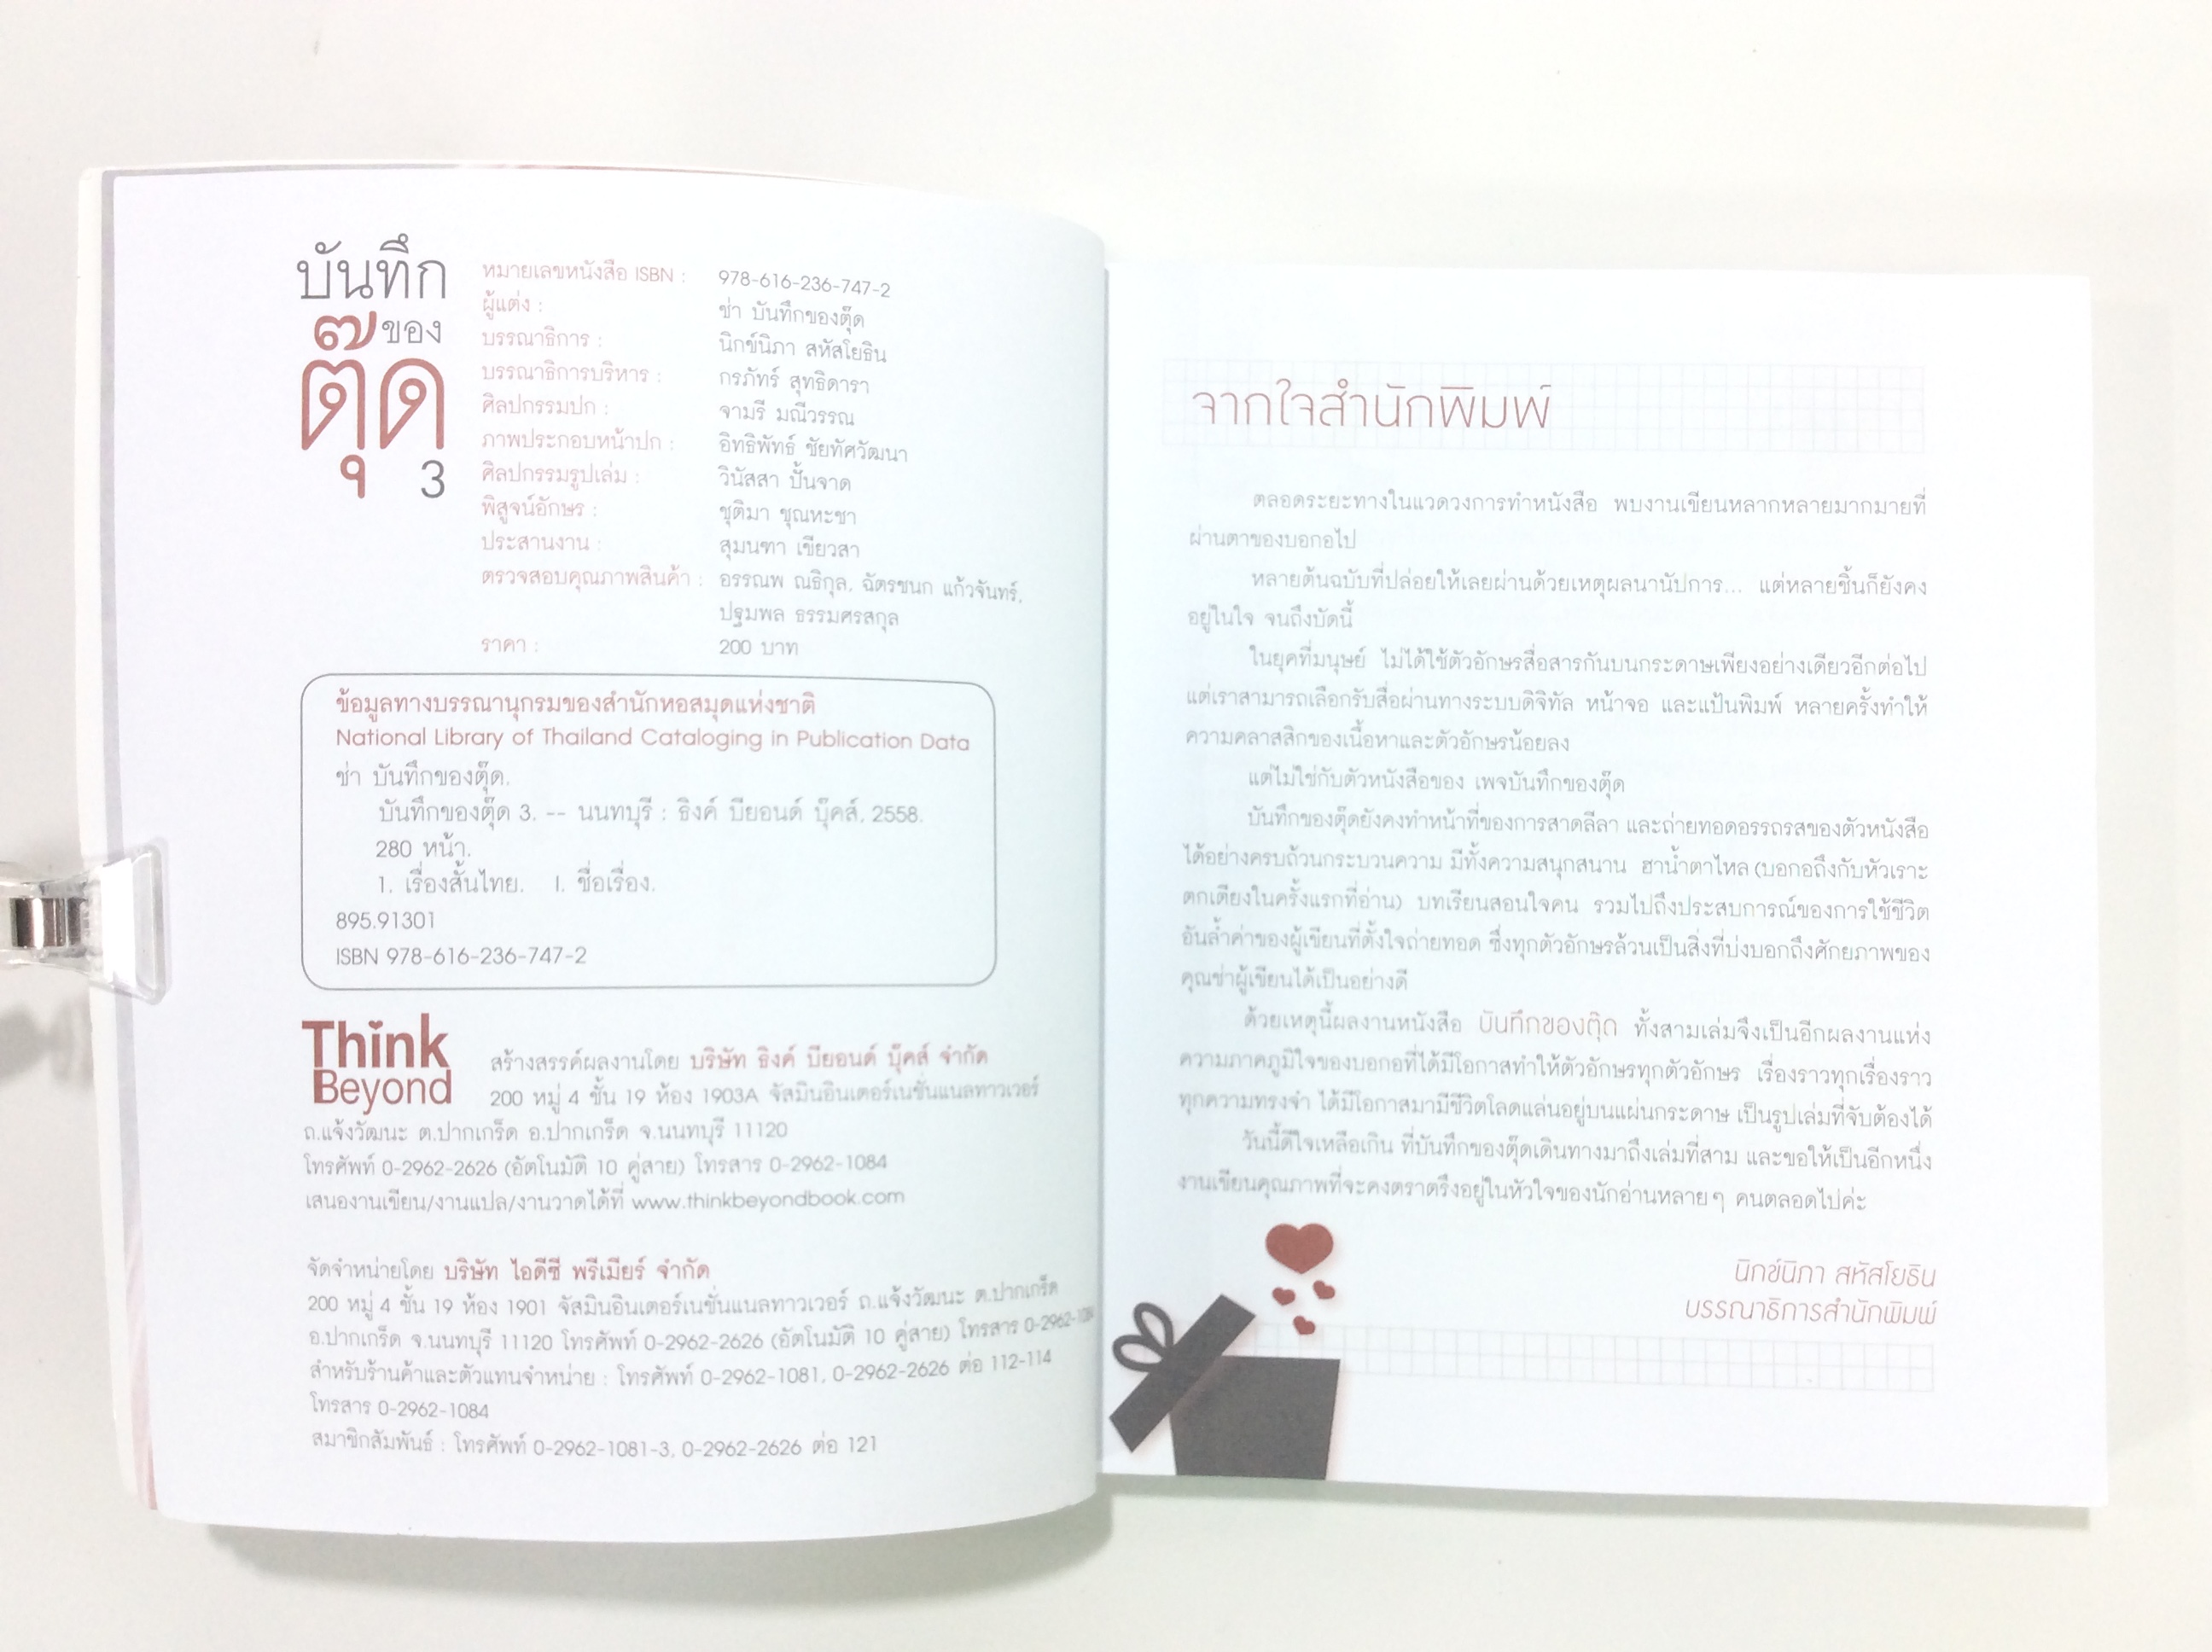 บันทึก
ของ
ตุ๊ด
3
หมายเลขหนังสือ ISBN : 978-616-236-747-2
ผู้แต่ง : ช่า บันทึกของตุ๊ด
บรรณาธิการ : นิกข์นิภา สหัสโยธิน
บรรณาธิการบริหาร : กรภัทร์ สุทธิดารา
ศิลปกรรมปก : จามรี มณีวรรณ
ภาพประกอบหน้าปก : อิทธิพัทธ์ ชัยทัศวัฒนา
ศิลปกรรมรูปเล่ม : วินัสสา ปั้นจาด
พิสูจน์อักษร : ชุติมา ชุณหะชา
ประสานงาน : สุมนฑา เขียวสา
ตรวจสอบคุณภาพสินค้า : อรรณพ ณธิกุล, ฉัตรชนก แก้วจันทร์,
ปฐมพล ธรรมศรสกุล
ราคา : 200 บาท
ข้อมูลทางบรรณานุกรมของสำนักหอสมุดแห่งชาติ
National Library of Thailand Cataloging in Publication Data
ช่า บันทึกของตุ๊ด.
บันทึกของตุ๊ด 3. -- นนทบุรี : ธิงค์ บียอนด์ บุ๊คส์, 2558.
280 หน้า.
1. เรื่องสั้นไทย. I. ชื่อเรื่อง.
895.91301
ISBN 978-616-236-747-2
Think
Beyond
สร้างสรรค์ผลงานโดย บริษัท ธิงค์ บียอนด์ บุ๊คส์ จำกัด
200 หมู่ 4 ชั้น 19 ห้อง 1903A จัสมินอินเตอร์เนชั่นแนลทาวเวอร์
ถ.แจ้งวัฒนะ ต.ปากเกร็ด อ.ปากเกร็ด จ.นนทบุรี 11120
โทรศัพท์ 0-2962-2626 (อัตโนมัติ 10 คู่สาย) โทรสาร 0-2962-1084
เสนองานเขียน/งานแปล/งานวาดได้ที่ www.thinkbeyondbook.com
จัดจำหน่ายโดย บริษัท ไอดีซี พรีเมียร์ จำกัด
200 หมู่ 4 ชั้น 19 ห้อง 1901 จัสมินอินเตอร์เนชั่นแนลทาวเวอร์ ถ.แจ้งวัฒนะ ต.ปากเกร็ด
อ.ปากเกร็ด จ.นนทบุรี 11120 โทรศัพท์ 0-2962-2626 (อัตโนมัติ 10 คู่สาย) โทรสาร 0-2962-1084
สำหรับร้านค้าและตัวแทนจำหน่าย : โทรศัพท์ 0-2962-1081, 0-2962-2626 ต่อ 112-114
โทรสาร 0-2962-1084
สมาชิกสัมพันธ์ : โทรศัพท์ 0-2962-1081-3, 0-2962-2626 ต่อ 121
จากใจสำนักพิมพ์
ตลอดระยะทางในแวดวงการทำหนังสือ พบงานเขียนหลากหลายมากมายที่
ผ่านตาของบอกอไป
หลายต้นฉบับที่ปล่อยให้เลยผ่านด้วยเหตุผลนานัปการ... แต่หลายชิ้นก็ยังคง
อยู่ในใจ จนถึงบัดนี้
ในยุคที่มนุษย์ ไม่ได้ใช้ตัวอักษรสื่อสารกันบนกระดาษเพียงอย่างเดียวอีกต่อไป
แต่เราสามารถเลือกรับสื่อผ่านทางระบบดิจิทัล หน้าจอ และแป้นพิมพ์ หลายครั้งทำให้
ความคลาสสิกของเนื้อหาและตัวอักษรน้อยลง
แต่ไม่ใช่กับตัวหนังสือของ เพจบันทึกของตุ๊ด
บันทึกของตุ๊ดยังคงทำหน้าที่ของการสาดลีลา และถ่ายทอดอรรถรสของตัวหนังสือ
ได้อย่างครบถ้วนกระบวนความ มีทั้งความสนุกสนาน ฮาน้ำตาไหล (บอกอถึงกับหัวเราะ
ตกเตียงในครั้งแรกที่อ่าน) บทเรียนสอนใจคน รวมไปถึงประสบการณ์ของการใช้ชีวิต
อันล้ำค่าของผู้เขียนที่ตั้งใจถ่ายทอด ซึ่งทุกตัวอักษรล้วนเป็นสิ่งที่บ่งบอกถึงศักยภาพของ
คุณช่าผู้เขียนได้เป็นอย่างดี
ด้วยเหตุนี้ผลงานหนังสือ บันทึกของตุ๊ด ทั้งสามเล่มจึงเป็นอีกผลงานแห่ง
ความภาคภูมิใจของบอกอที่ได้มีโอกาสทำให้ตัวอักษรทุกตัวอักษร เรื่องราวทุกเรื่องราว
ทุกความทรงจำ ได้มีโอกาสมามีชีวิตโลดแล่นอยู่บนแผ่นกระดาษ เป็นรูปเล่มที่จับต้องได้
วันนี้ดีใจเหลือเกิน ที่บันทึกของตุ๊ดเดินทางมาถึงเล่มที่สาม และขอให้เป็นอีกหนึ่ง
งานเขียนคุณภาพที่จะคงตราตรึงอยู่ในหัวใจของนักอ่านหลายๆ คนตลอดไปค่ะ
นิกข์นิภา สหัสโยธิน
บรรณาธิการสำนักพิมพ์